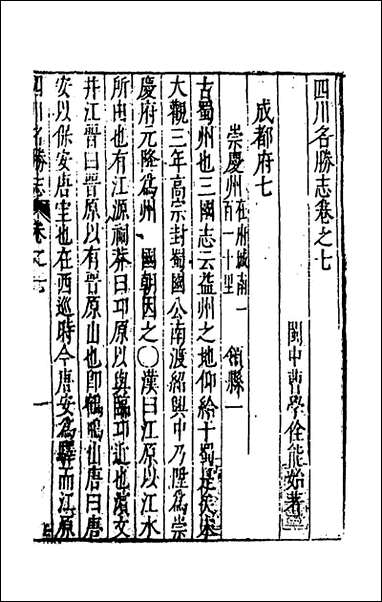 四川名勝志卷之七
閩中曹學佺能始著
成都府七
崇慶州在府城南一百一十里 領縣一
古蜀州也三國志云益州之地仰給十蜀是矣本
大觀三年高宗封蜀國公南渡紹興中乃陞爲崇
慶府元降爲州 國朝因之○漢曰江原以江水
所由也有江源祠莽曰邛原以與臨邛近也漢文
井江晉曰晉原以有晉原山也卽鶴鳴山唐曰唐
安以保安唐室也在西巡時今唐安爲驛而江原
四川名勝志 卷之七 一